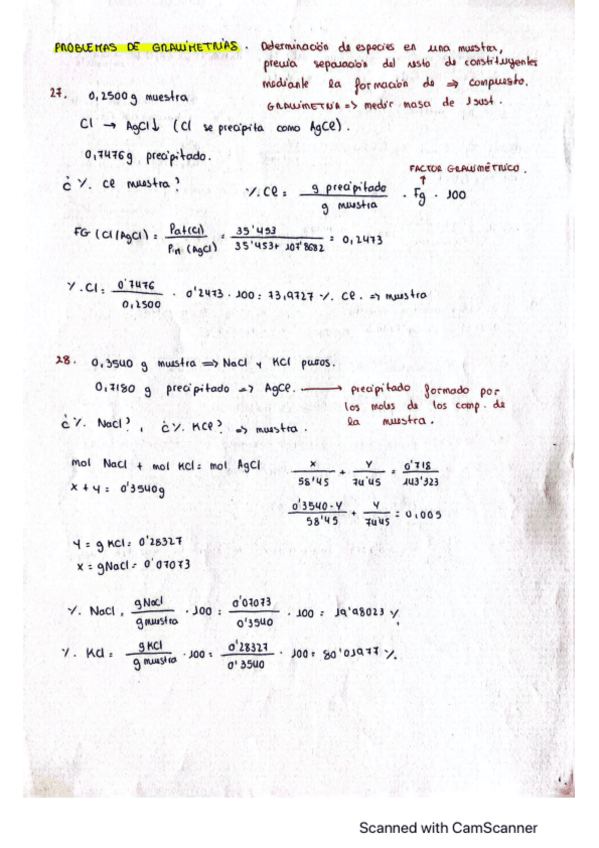 PROBLEMAS DE GRAVIMETRIAS. Determinación de especies en una muestra,
previa separación del resto de constituyentes
mediante la formación de => compuesto.
GRAVIMETRÍA => medir masa de 1 sust.
27. 0,2500 g muestra
Cl → AgCl↓ (Cl se precipita como AgCl).
0,7476 g precipitado.
¿ %. Cl muestra?
%. Cl = g precipitado / g muestra · Fg · 100
FACTOR GRAVIMÉTRICO.
FG (Cl/AgCl) = Pat(Cl) / Pm (AgCl) = 35'453 / 35'453 + 107'8682 = 0,2473
%. Cl = 0'7476 / 0,2500 · 0'2473 · 100 = 73,9727 %. Cl. => muestra
28. 0,3540 g muestra => NaCl y KCl puros.
0,7180 g precipitado => AgCl. → precipitado formado por
los moles de los comp. de
la muestra.
¿ %. NaCl?, ¿ %. KCl? => muestra.
mol NaCl + mol KCl = mol AgCl
x + y = 0'3540g
x / 58'45 + y / 74'45 = 0'718 / 143'323
0'3540 - y / 58'45 + y / 74'45 = 0,005
y = g KCl = 0'28327
x = g NaCl = 0'07073
%. NaCl = gNaCl / gmuestra · 100 = 0'07073 / 0'3540 · 100 = 19'98023 %.
%. KCl = gKCl / gmuestra · 100 = 0'28327 / 0'3540 · 100 = 80'01977 %.
Scanned with CamScanner